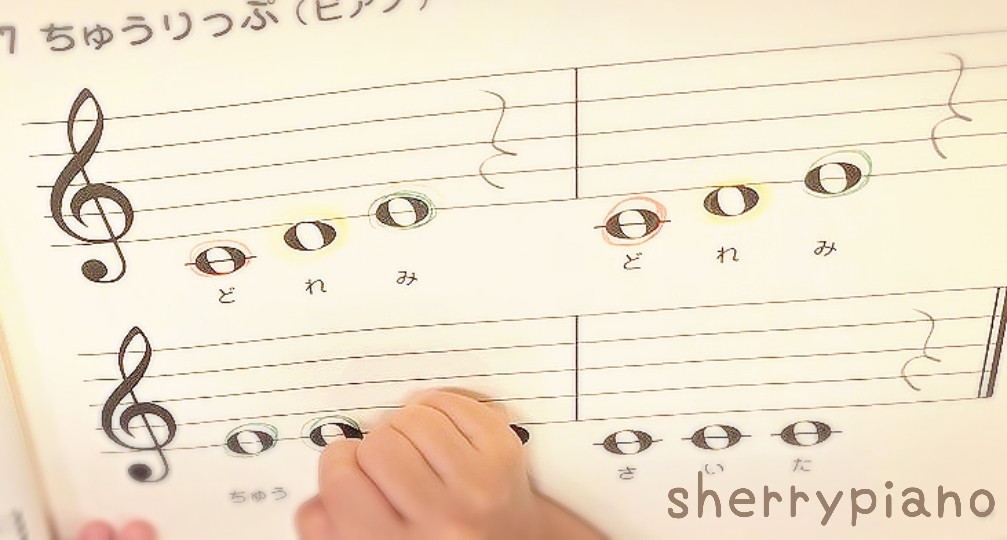 7 ちゅうりっぷ(ピアノ)
ど れ み ど れ み
ちゅう さ い た
sherrypiano